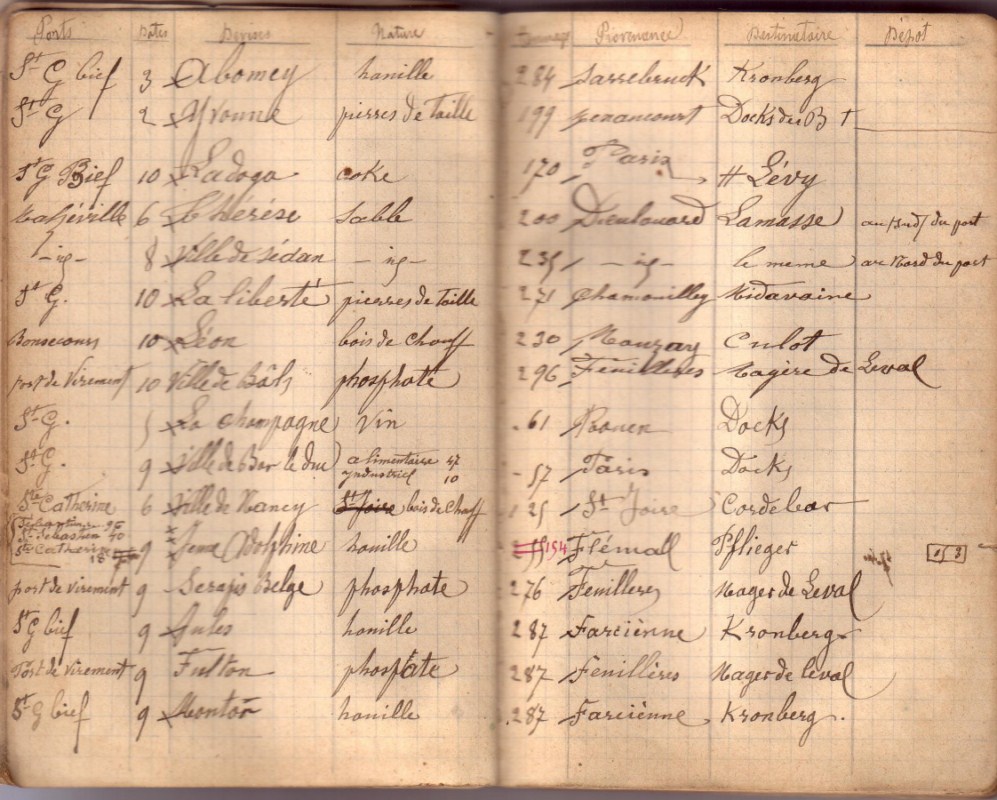 Ports Dates Devises Nature Tonnage Provenance Destinataire Dépôt
St G bief 3 Abomey houille 284 Sarrebruck Kronberg
St G 2 Yvonne pierres de taille 199 Docks du B t
St G Bief 10 Ladoga coke 170 Paris H Lévy
Malzéville 6 Thérèse sable 200 Dieulouard Lamasse au Sud du port
- id - 8 Ville de Sédan - id - 235 - id - le meme au Nord du port
St G. 10 La liberté pierres de taille 271 Chamouilley Midavaine
Bonsecours 10 Léon bois de chauff 230 Mouzay Culot
port de Virement 10 Ville de phosphate 296 Feuillères Magère de Leval
St G. 5 La Champagne vin 61 Rouen Docks
St G. 9 Ville de Bar le duc alimentaire 47 57 Paris Docks
industriel 10
Ste Catherine 6 Ville de Nancy St Joire bois de chauff 125 St Joire Cordebar
St Sébastien 40
Ste Catherine 18 9 Jeune Delphine houille 154 Flémall Pflieger 153
port de virement 9 Serapis Belge phosphate 276 Feuilleres Mager de Leval
St G bief 9 Jules houille 287 Farciènne Kronberg
Port de virement 9 Fulton phosphate 287 Feuillères Mager de leval
St G bief 9 houille 287 Farciènne Kronberg.